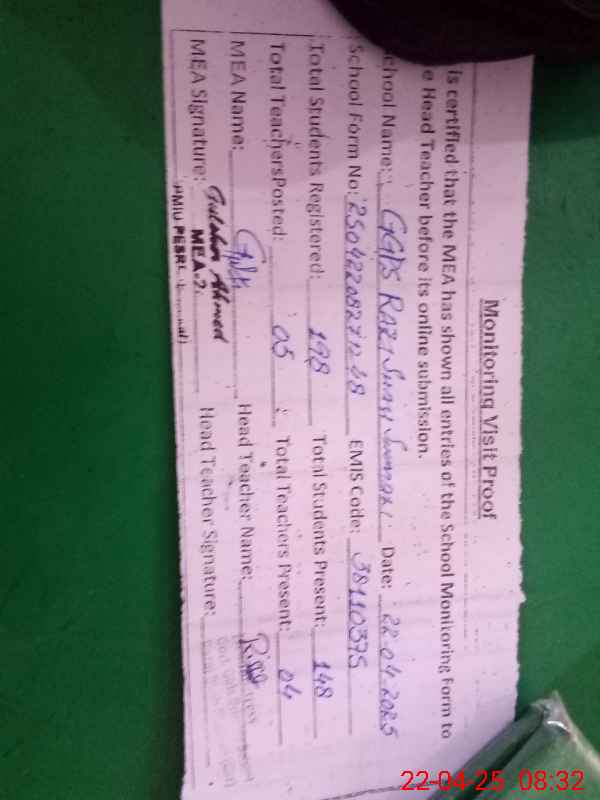 Monitoring Visit Proof
is certified that the MEA has shown all entries of the School Monitoring Form to
e Head Teacher before its online submission.
chool Name: GGPS RAZI Shah Date: 22.04.2025
School Form No: EMIS Code: 38110375
Total Students Registered: 198 Total Students Present: 148
Total TeachersPosted: 05 Total Teachers Present: 04
MEA Name: Head Teacher Name:
MEA Signature: Head Teacher Signature:
Gulshan Ahmed
MEA-2
PMIU PESRP
22-04-25 08:32